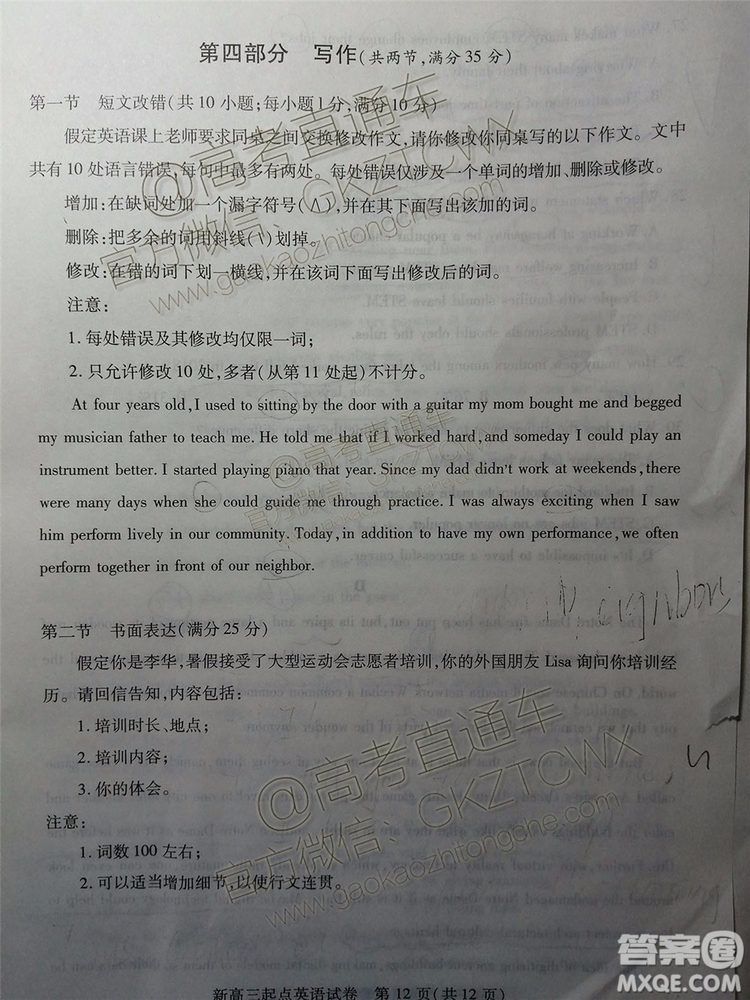 第四部分 写作(共两节,满分35分)
第一节 短文改错(共10小题;每小题1分,满分10分)
假定英语课上老师要求同桌之间交换修改作文,请你修改你同桌写的以下作文。文中
共有10处语言错误,每句中最多有两处。每处错误仅涉及一个单词的增加、删除或修改。
增加:在缺词处加一个漏字符号(∧),并在其下面写出该加的词。
删除:把多余的词用斜线(\)划掉。
修改:在错的词下划一横线,并在该词下面写出修改后的词。
注意:
1. 每处错误及其修改均仅限一词;
2. 只允许修改10处,多者(从第11处起)不计分。
At four years old, I used to sitting by the door with a guitar my mom bought me and begged
my musician father to teach me. He told me that if I worked hard, and someday I could play an
instrument better. I started playing piano that year. Since my dad didn't work at weekends, there
were many days when she could guide me through practice. I was always exciting when I saw
him perform lively in our community. Today, in addition to have my own performance, we often
perform together in front of our neighbor.
第二节 书面表达(满分25分)
假定你是李华,暑假接受了大型运动会志愿者培训,你的外国朋友Lisa询问你培训经
历。请回信告知,内容包括:
1. 培训时长、地点;
2. 培训内容;
3. 你的体会。
注意:
1. 词数100左右;
2. 可以适当增加细节,以使行文连贯。
新高三起点英语试卷 第12页(共12页)
@高考直通车
官方微信:GKZTCWX
www.gaokaozhitongche.com
@高考直通车
官方微信:GKZTCWX
@高考直通车
官方微信:GKZTCWX
www.gaokaozhitongche.com
答案圈
MXQE.COM